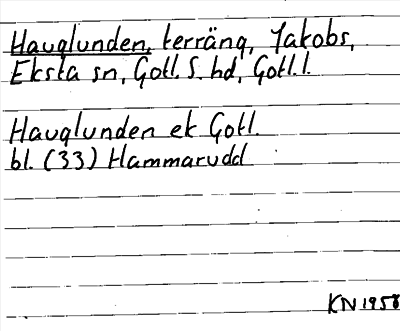 Hauglunden, terräng, Jakobs,
Eksta sn, Gotl. S. hd, Gotl. l.
Hauglunden ek Gotl.
bl. (33) Hammarudd
KN 1958